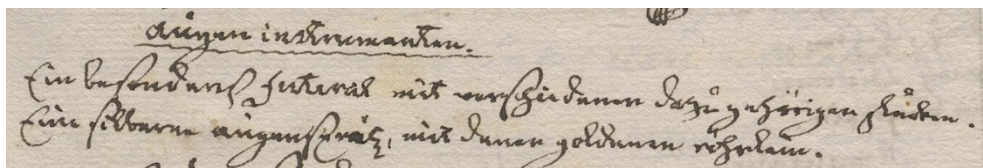 Augen instrumenten.
Ein besonders Futeral mit verschidenen dazu gehörigen stucken.
Ein silberne augenspritz, mit denen goldenen röhrlein.